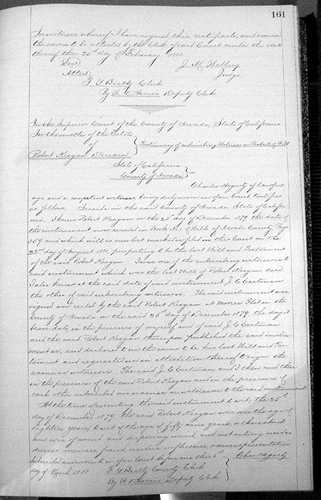 161
In witness whereof I have signed this certificate, and caused
the same to be attested by the Clerk of said Court under the seal
thereof this day of February
Seal J. M. Walling
Attest Judge
F. G. Beatty Clerk
By Deputy Clerk
In the Superior Court of the County of Nevada, State of California
In the matter of the Estate
of Testimony of subscribing Witness on Probate of Will
Robert Keegan Deceased
State of California
County of Nevada ss
Charles Hegarty of lawful
age and a competent witness being duly sworn in open Court testifies
as follows I reside in the said County of Nevada State of
I knew Robert Keegan on the 25th day of December 1879 the date of
the instrument now recorded in Book No of Wills of Nevada County Page
and which will is now but marked filed in this Court on the
day of as purporting to be the last Will and Testament
of the said Robert Keegan. I am one of the subscribing witnesses to
said instrument which was the last Will of Robert Keegan dec'd
I also knew at the said date of said instrument J. C.
the other of said subscribing witnesses. The said instrument was
signed and sealed by the said Robert Keegan at Moores Flat in the
County of Nevada on the said 25th day of December 1879 the day it
bears date, in the presence of myself and of said J. C.
and the said Robert Keegan thereupon published the said instru-
ment as, and declared to us the same to be his last Will and Tes-
tament and requested us in attestation thereof to sign the
same as witnesses. The said J. C. and I then and there
in the presence of the said Robert Keegan and in the presence of
each other subscribed our names as witnesses to the said instrument
At the time of executing the said instrument to wit, the 25th
day of December 1879 the said Robert Keegan was over the age of
eighteen years, to wit of the age of fifty nine years or thereabout
and was of sound and disposing mind, and not acting under
duress menace fraud undue influence or misrepresentation
Subscribed and sworn to in open Court by me this Chas Hegarty
day of
F. G. Beatty County Clerk
By Deputy Clerk